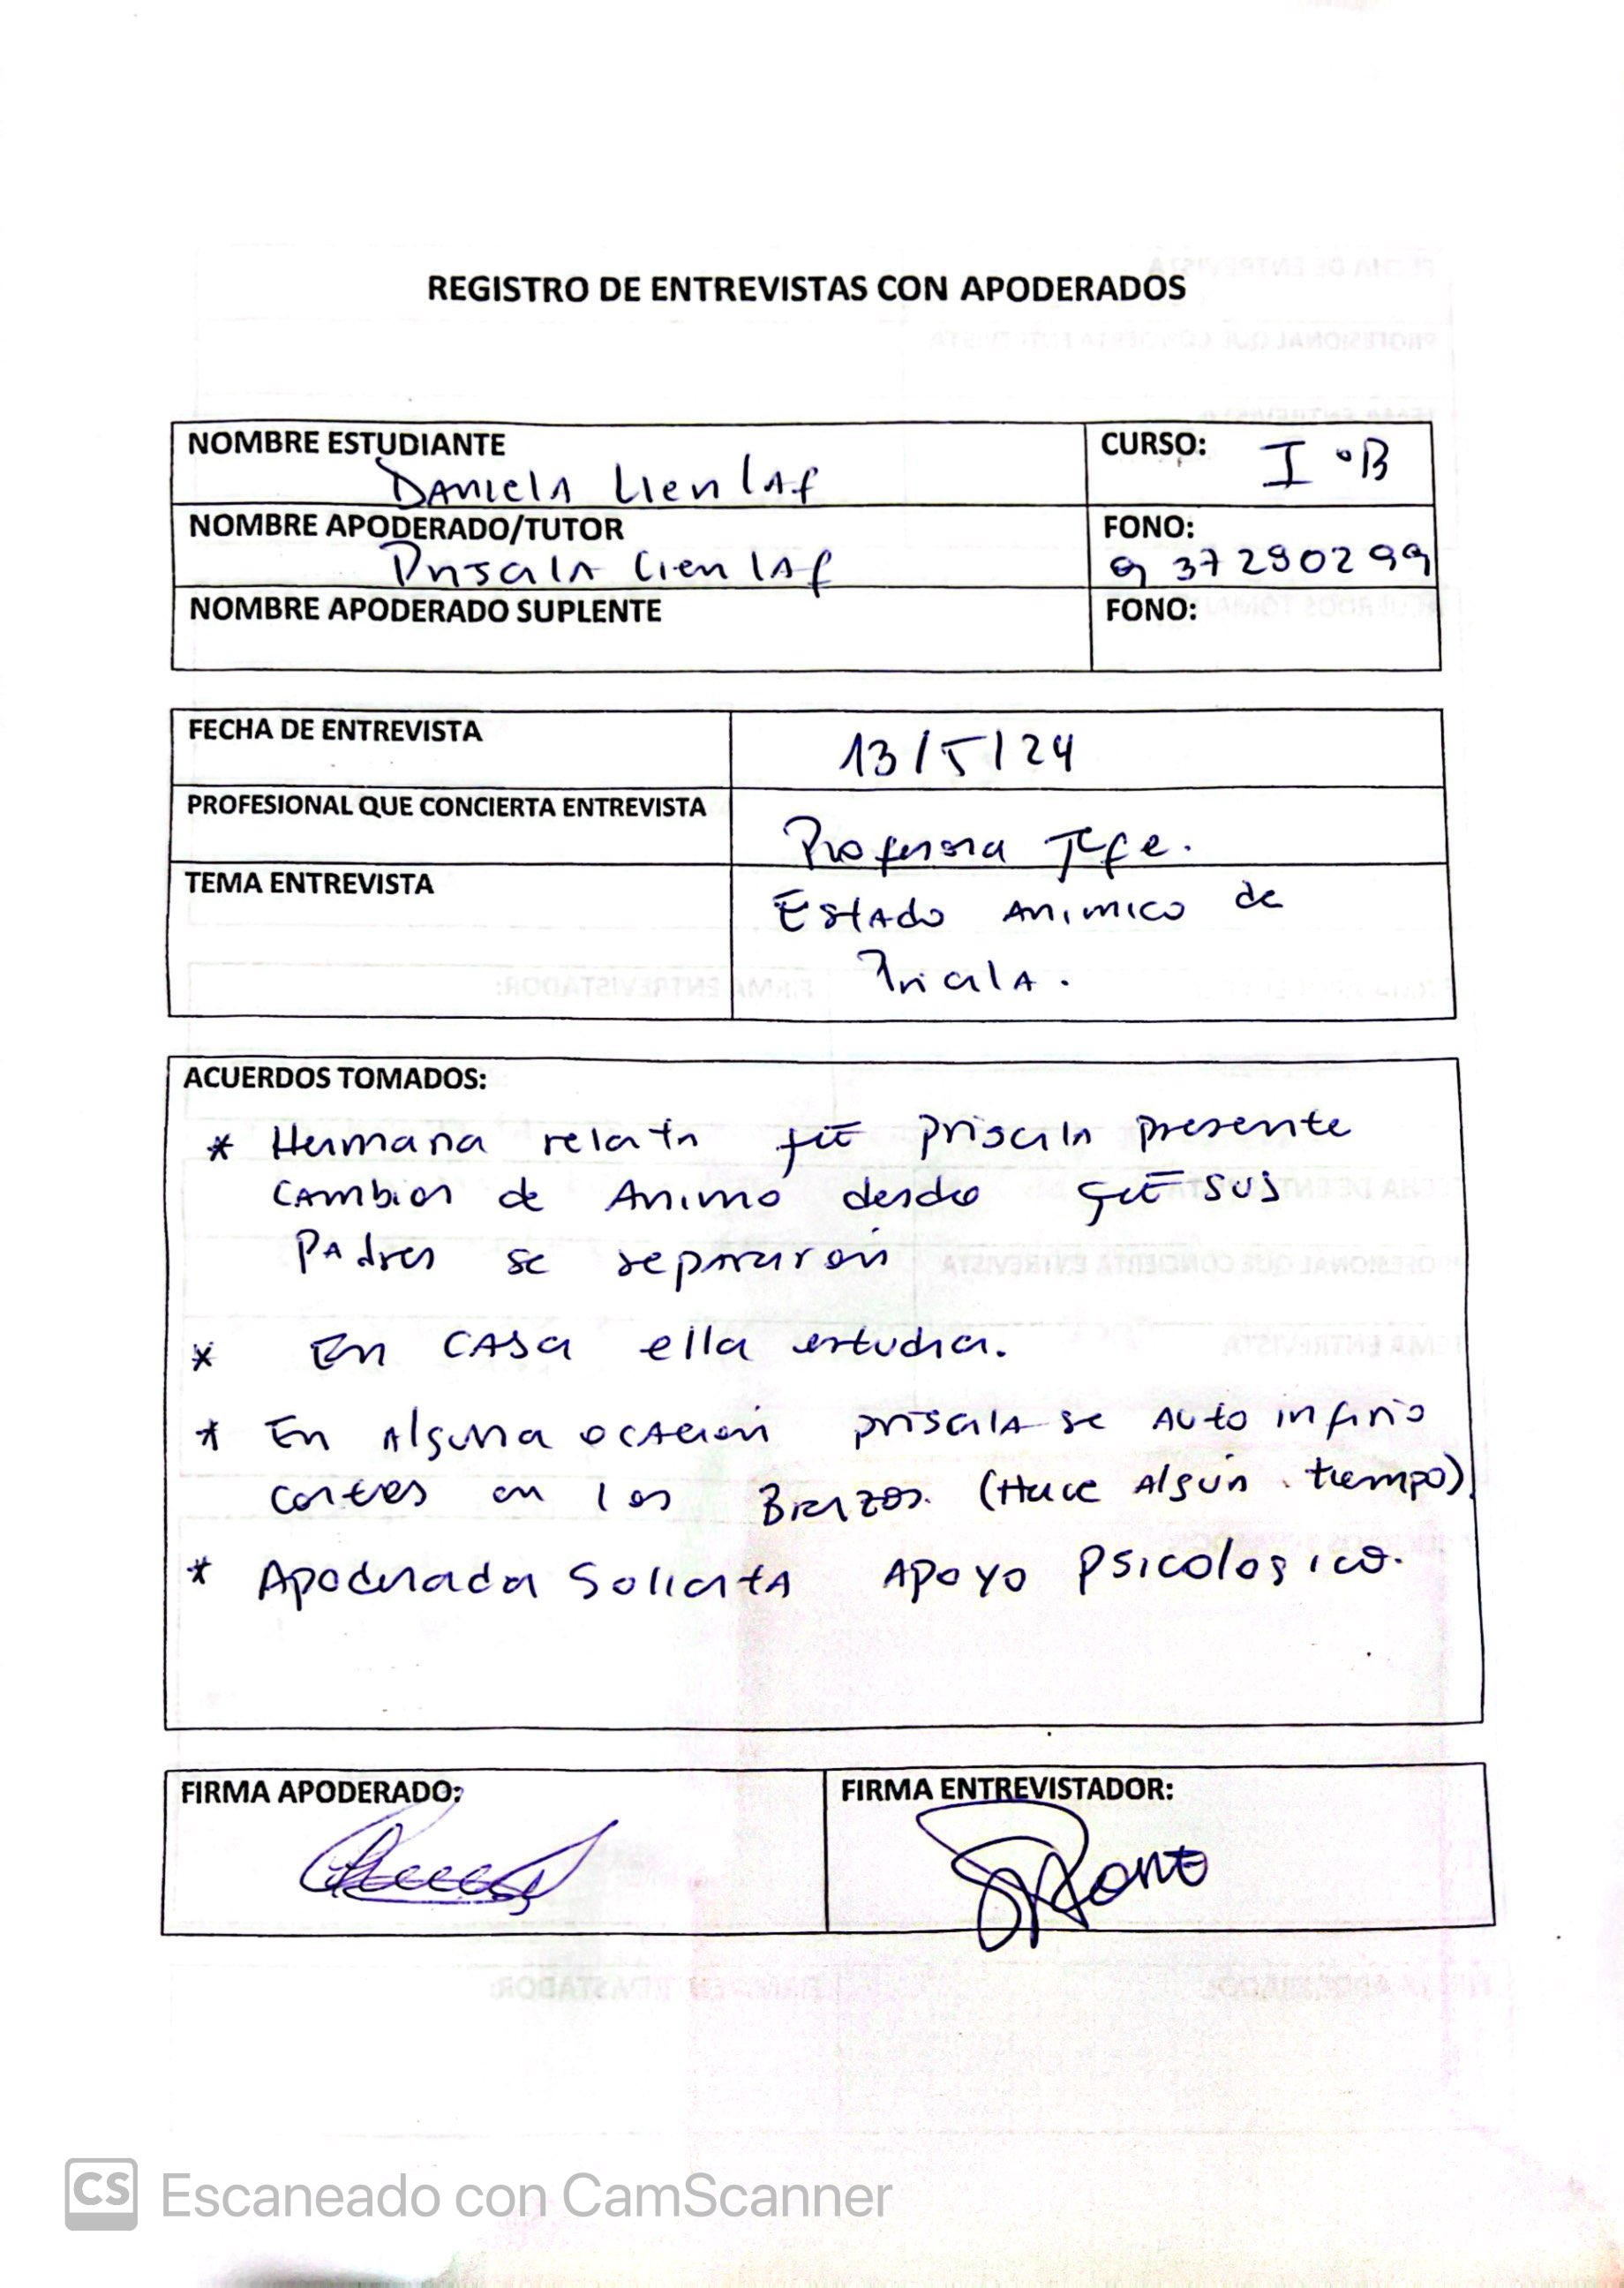 REGISTRO DE ENTREVISTAS CON APODERADOS
NOMBRE ESTUDIANTE
Daniela Llenlaf
CURSO: I °B
NOMBRE APODERADO/TUTOR
Priscila Lienlaf
FONO:
9 37290299
NOMBRE APODERADO SUPLENTE
FONO:
FECHA DE ENTREVISTA
13/5/24
PROFESIONAL QUE CONCIERTA ENTREVISTA
Profesora Jefe.
TEMA ENTREVISTA
Estado Animico de
Pricila.
ACUERDOS TOMADOS:
* Hermana relata que priscila presente
cambios de Animo desde que sus
Padres se separaron
* En casa ella estudia.
* En Alguna ocación priscila se Auto infirio
cortes en los Brazos. (Hace Algún tiempo)
* Apoderada Solicita Apoyo Psicologico.
FIRMA APODERADO:
FIRMA ENTREVISTADOR:
CS Escaneado con CamScanner